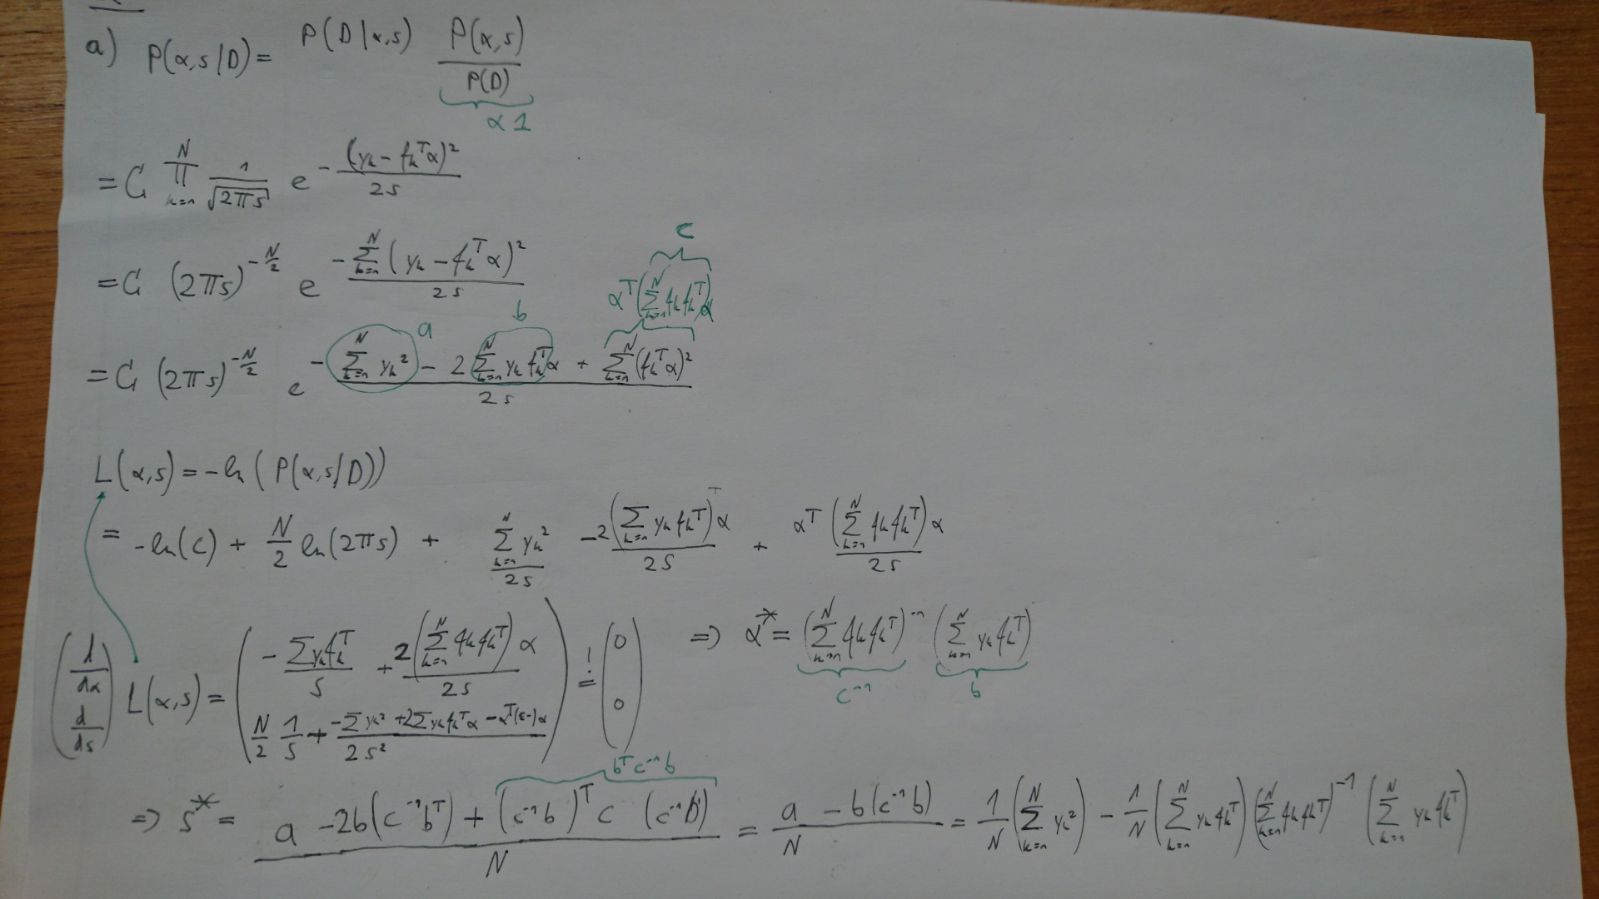 a) P(α,s|D) = P(D|α,s) P(α,s)/P(D)
∝ 1
= C ∏_{k=1}^{N} 1/√(2πs) e^{-(y_k - f_k^T α)²/(2s)}
= C (2πs)^{-N/2} e^{-∑_{k=1}^{N} (y_k - f_k^T α)²/(2s)}
c
α^T (∑_{k=1}^{N} f_k f_k^T) α
a b
= C (2πs)^{-N/2} e^{-(∑_{k=1}^{N} y_k² - 2 ∑_{k=1}^{N} y_k f_k^T α + ∑_{k=1}^{N} (f_k^T α)²)/(2s)}
L(α,s) = -ln(P(α,s|D))
= -ln(C) + N/2 ln(2πs) + ∑_{k=1}^{N} y_k²/(2s) -2(∑_{k=1} y_k f_k^T)^T α/(2s) + α^T (∑_{k=1}^{N} f_k f_k^T) α/(2s)
(d/dα ; d/ds) L(α,s) = (-∑ y_k f_k^T/s + 2(∑_{k=1}^{N} f_k f_k^T) α/(2s) ; N/2 1/s + (-∑ y_k² + 2∑ y_k f_k^T α - α^T(s-)α)/(2s²)) =! (0 ; 0) ⇒ α* = (∑_{k=1}^{N} f_k f_k^T)^{-1} (∑_{k=1}^{N} y_k f_k^T)
c^{-1} b
b^T c^{-1} b
⇒ s* = (a - 2b(c^{-1} b^T) + (c^{-1} b)^T c (c^{-1} b))/N = (a - b(c^{-1} b))/N = 1/N (∑_{k=1}^{N} y_k²) - 1/N (∑_{k=1}^{N} y_k f_k^T) (∑_{k=1}^{N} f_k f_k^T)^{-1} (∑_{k=1}^{N} y_k f_k^T)